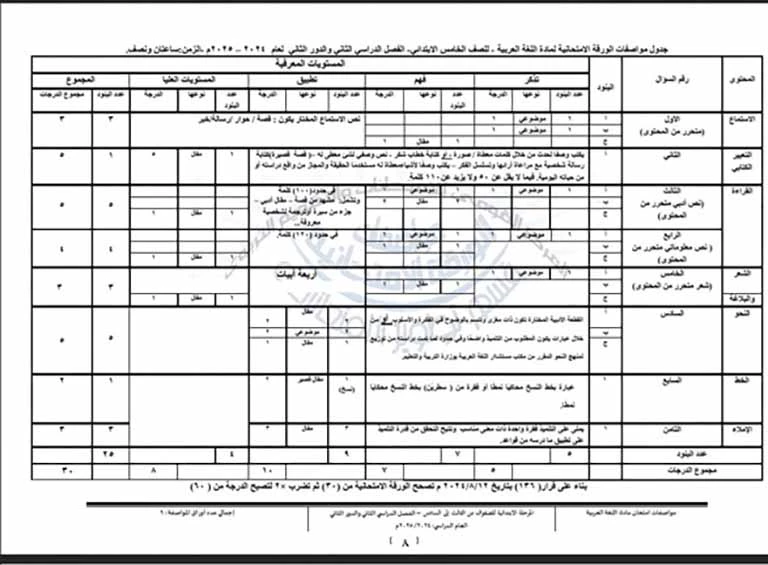 جدول مواصفات الورقة الامتحانية لمادة اللغة العربية - للصف الخامس الابتدائي- الفصل الدراسي الثاني والدور الثاني لعام ٢٠٢٤ - ٢٠٢٥م -الزمن:ساعتان ونصف.
المحتوي رقم السؤال البنود المستويات المعرفية
تذكر فهم تطبيق المستويات العليا المجموع
عدد البنود نوعها الدرجة عدد البنود نوعها الدرجة عدد البنود نوعها الدرجة عدد البنود نوعها الدرجة عدد البنود مجموع الدرجات
الاستماع الأول (متحرر من المحتوى) نص الاستماع المختار يكون : قصة / حوار /رسالة/خبر ٣ ٣
أ ١ موضوعي ١
ب ١ موضوعي ١
ج ١ مقال ١
التعبير الكتابي الثاني ١ مقال ٥ ١ ٥
يكتب وصفا لحدث من خلال كلمات معطاة / صورة /أو كتابة خطاب شكر - نص وصفي لشئ معطى له -(قصة قصيرة)كتابة
رسالة شخصية مع مراعاة أرائها وتسلسل الفكر - يكتب وصفا لأشياء معطاة له مستخدما الحقيقة والمجاز من واقع دراسته أو
من حياته اليومية. فيما لا يقل عن ٥٠ ولا يزيد عن ١١٠ كلمة.
القراءة الثالث (نص أدبي متحرر من المحتوى) ٥ ٥
في حدود(١٠٠) كلمة
وتشمل: مشهد من قصة - مقال أدبي -
جزء من سيرة أوترجمة لشخصية
معروفة..
الرابع ( نص معلوماتي متحرر من المحتوى) ٤ ٤
في حدود (١٢٠) كلمة.
الشعر والبلاغة الخامس (شعر متحرر من المحتوى) أربعة أبيات ٣ ٣
النحو السادس ٥ ٥
القطعة الأدبية المختارة تكون ذات مغزى وتتسم بالوضوح في الفكرة والأسلوب أو من
خلال عبارات يكون المطلوب من التلميذ واضحا وفي حدود لما تمت دراسته من توزيع
لمنهج النحو المقرر من مكتب مستشار اللغة العربية بوزارة التربية والتعليم.
الخط السابع ١ (نسخ) مقال قصير ٢ ١ ٢
عبارة بخط النسخ محاكيا نمطا أو فقرة من ( سطرين) بخط النسخ محاكيا
نمطا.
الإملاء الثامن ٣ مقال ٣ ٣ ٣
يملى على التلميذ فقرة واحدة ذات معنى مناسب وتتيح التحقق من قدرة التلميذ
على تطبيق ما درسه من قواعد.
عدد البنود ٥ ٧ ٩ ٤ ٢٥
مجموع الدرجات ٥ ٧ ١٠ ٨ ٣٠
بناء على قرار( ١٣٦) بتاريخ ٢٠٢٤/٨/١٢ م تصحح الورقة الامتحانية من (٣٠) ثم تضرب ×٢ لتصبح الدرجة من ( ٦٠)
مواصفات امتحان مادة اللغة العربية
المرحلة الابتدائية للصفوف من الثالث إلى السادس - الفصل الدراسي الثاني والدور الثاني
العام الدراسي:٢٠٢٤/ ٢٠٢٥م
إجمالي عدد أوراق المواصفة:٦٠
[ ٨ ]